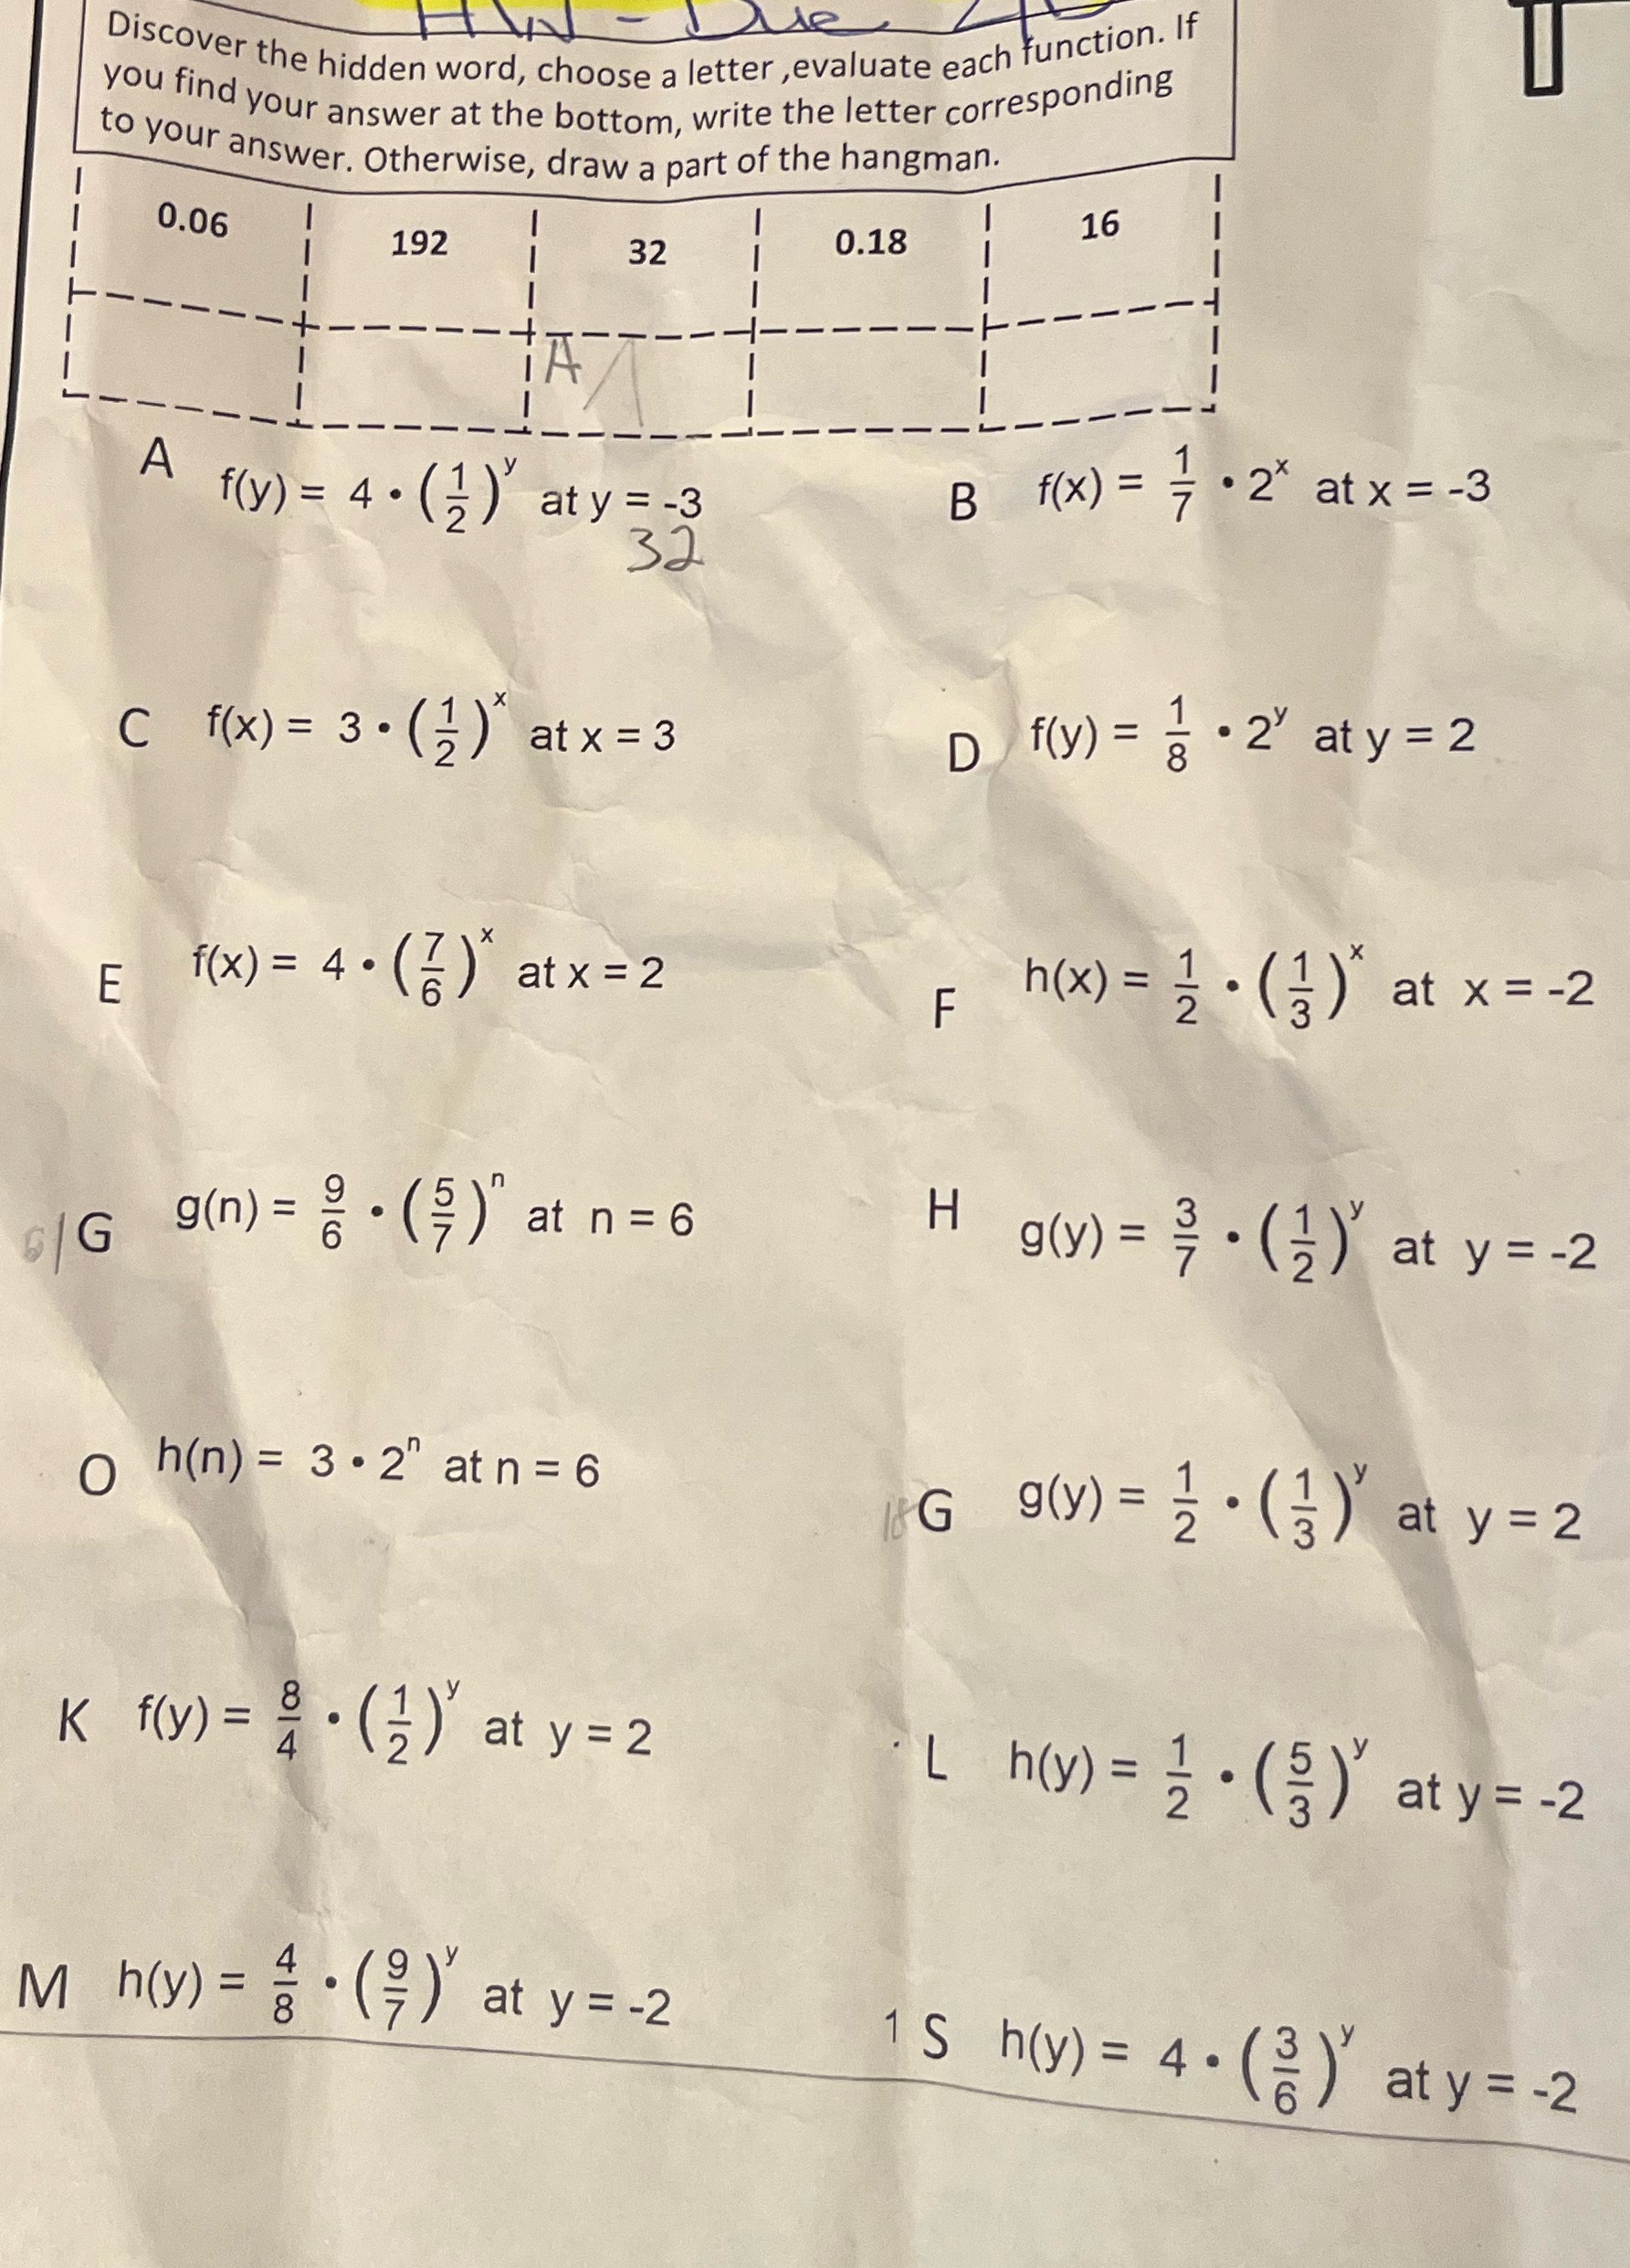 HW - Due
Discover the hidden word, choose a letter ,evaluate each function. If
you find your answer at the bottom, write the letter corresponding
to your answer. Otherwise, draw a part of the hangman.
0.06 192 32 0.18 16
A
A f(y) = 4 • (1/2)^y at y = -3
B f(x) = 1/7 • 2^x at x = -3
32
C f(x) = 3 • (1/2)^x at x = 3
D f(y) = 1/8 • 2^y at y = 2
E f(x) = 4 • (7/6)^x at x = 2
F h(x) = 1/2 • (1/3)^x at x = -2
G g(n) = 9/6 • (5/7)^n at n = 6
H g(y) = 3/7 • (1/2)^y at y = -2
O h(n) = 3 • 2^n at n = 6
G g(y) = 1/2 • (1/3)^y at y = 2
K f(y) = 8/4 • (1/2)^y at y = 2
L h(y) = 1/2 • (5/3)^y at y = -2
M h(y) = 4/8 • (9/7)^y at y = -2
1 S h(y) = 4 • (3/6)^y at y = -2